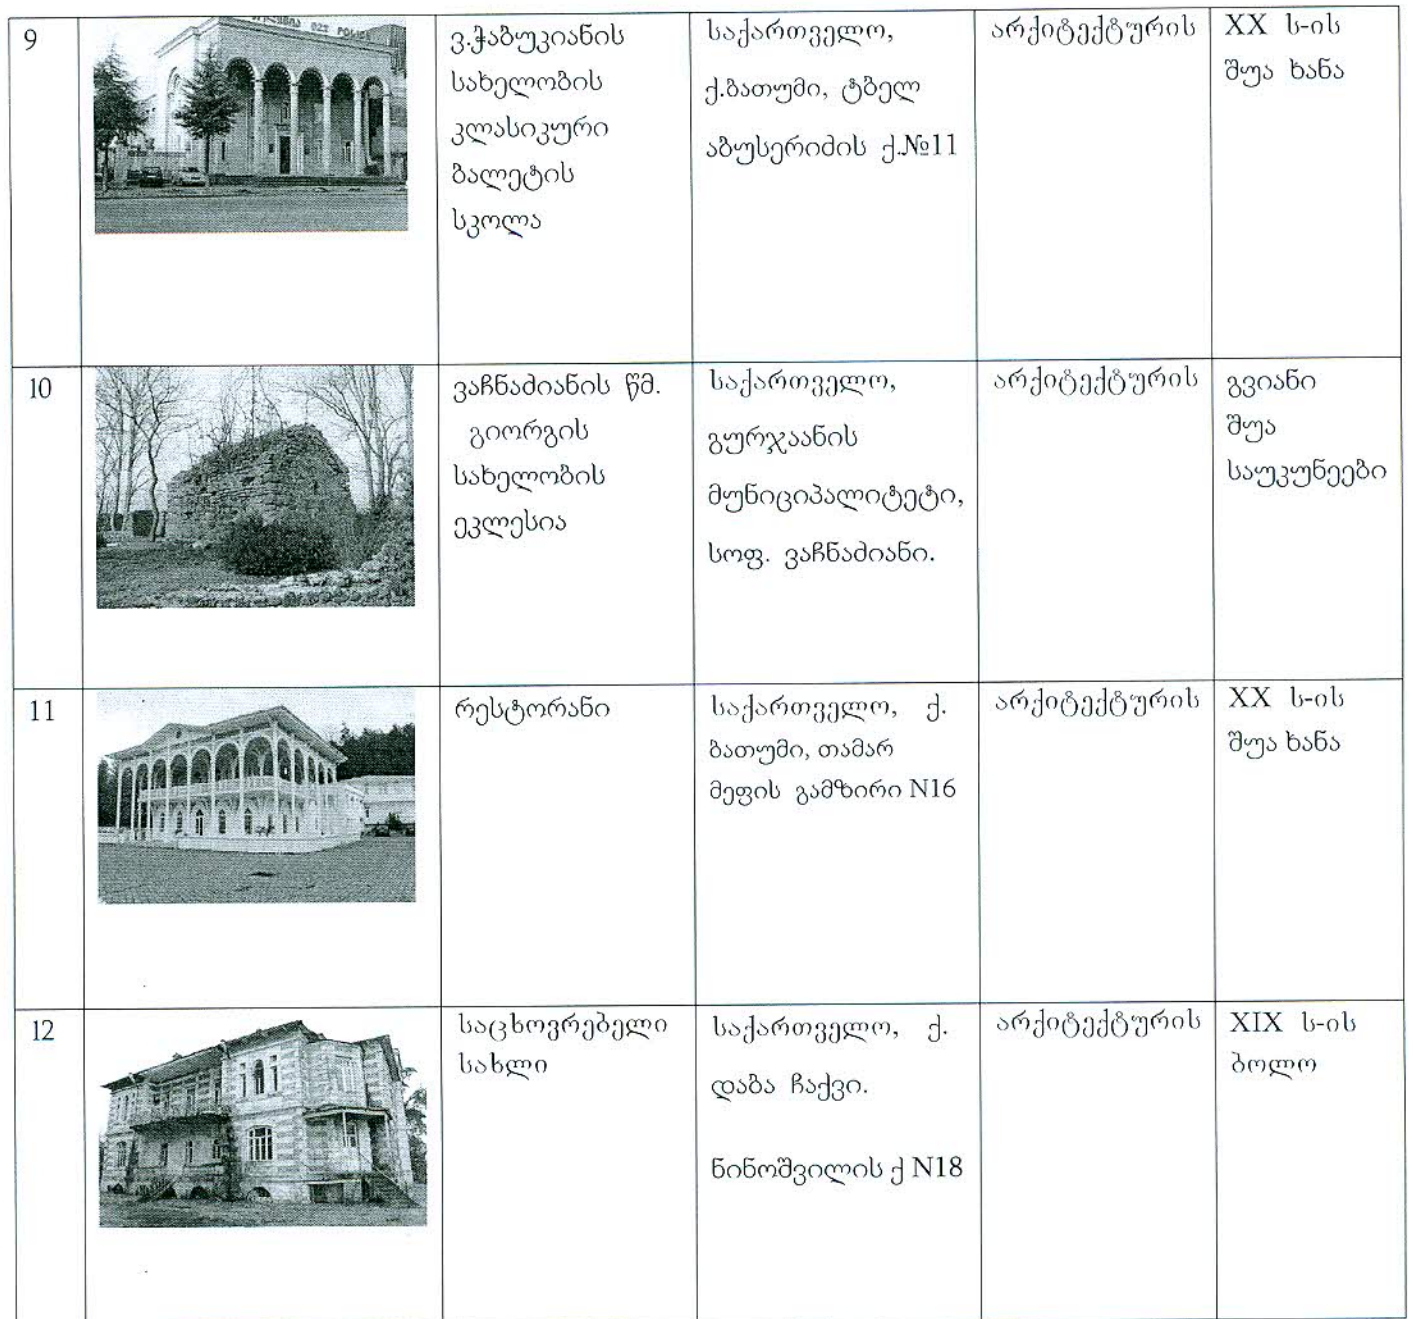 9
ვ.ჭაბუკიანის
სახელობის
კლასიკური
ბალეტის
სკოლა
საქართველო,
ქ.ბათუმი, ტბელ
აბუსერიძის ქ.№11
არქიტექტურის
XX ს-ის
შუა ხანა
10
ვაჩნაძიანის წმ.
გიორგის
სახელობის
ეკლესია
საქართველო,
გურჯაანის
მუნიციპალიტეტი,
სოფ. ვაჩნაძიანი.
არქიტექტურის
გვიანი
შუა
საუკუნეები
11
რესტორანი
საქართველო, ქ.
ბათუმი, თამარ
მეფის გამზირი N16
არქიტექტურის
XX ს-ის
შუა ხანა
12
საცხოვრებელი
სახლი
საქართველო, ქ.
დაბა ჩაქვი.
ნინოშვილის ქ N18
არქიტექტურის
XIX ს-ის
ბოლო